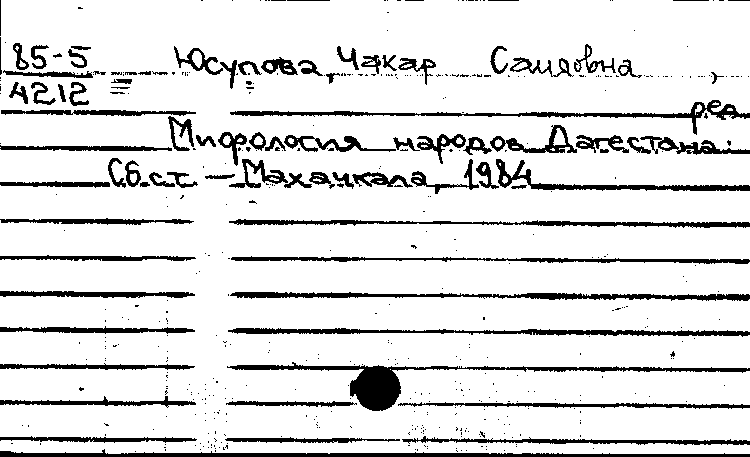 85-5 Юсупова, Чакар Саидовна,
4212
ред
Мифология народов Дагестана:
Сб.ст. — Махачкала, 1984